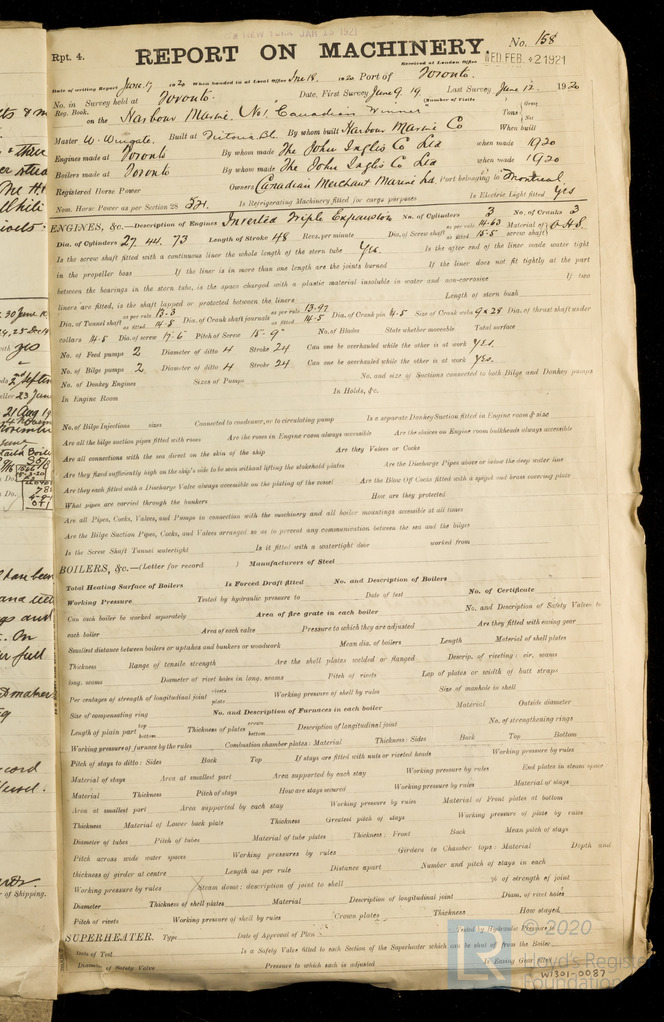 NEW YORK JAN 1921
Rpt. 4.
REPORT ON MACHINERY.
No. 158
Received at London Office WED. FEB. 2 1921
Date of writing Report June 17 1920 When handed in at Local Office June 18. 1920 Port of Toronto.
No. in Survey held at Toronto. Date, First Survey June 9. 19 Last Survey June 12. 1920
Reg. Book. (Number of Visits
on the Harbour Marine No 1 "Canadian Winner" Tons Gross Net
Master W. Wingate. Built at Victoria B.C. By whom built Harbour Marine Co When built
Engines made at Toronto By whom made The John Inglis Co Ltd when made 1920
Boilers made at Toronto By whom made The John Inglis Co Ltd when made 1920
Registered Horse Power Owners Canadian Merchant Marine Ltd. Port belonging to Montreal
Nom. Horse Power as per Section 28 Is Refrigerating Machinery fitted for cargo purposes Is Electric Light fitted yes
ENGINES, &c.—Description of Engines Inverted Triple Expansion No. of Cylinders 3 No. of Cranks 3
Dia. of Cylinders 27. 44. 73 Length of Stroke 48 Revs. per minute Dia. of Screw shaft as per rule 14.63 as fitted 15.5 Material of screw shaft O.H.S.
Is the screw shaft fitted with a continuous liner the whole length of the stern tube Yes. Is the after end of the liner made water tight
in the propeller boss If the liner is in more than one length are the joints burned If the liner does not fit tightly at the part
between the bearings in the stern tube, is the space charged with a plastic material insoluble in water and non-corrosive If two
liners are fitted, is the shaft lapped or protected between the liners Length of stern bush
Dia. of Tunnel shaft as per rule 13.3 as fitted 14.5 Dia. of Crank shaft journals as per rule 13.97 as fitted 14.5 Dia. of Crank pin 14.5 Size of Crank webs 9 x 28 Dia. of thrust shaft under
collars 14.5 Dia. of screw 17-6 Pitch of Screw 15-9" No. of Blades State whether moveable Total surface
No. of Feed pumps 2 Diameter of ditto 4 Stroke 24 Can one be overhauled while the other is at work Yes.
No. of Bilge pumps 2 Diameter of ditto 4 Stroke 24 Can one be overhauled while the other is at work Yes.
No. of Donkey Engines Sizes of Pumps No. and size of Suctions connected to both Bilge and Donkey pumps
In Engine Room In Holds, &c.
No. of Bilge Injections sizes Connected to condenser, or to circulating pump Is a separate Donkey Suction fitted in Engine room & size
Are all the bilge suction pipes fitted with roses Are the roses in Engine room always accessible Are the sluices on Engine room bulkheads always accessible
Are all connections with the sea direct on the skin of the ship Are they Valves or Cocks
Are they fixed sufficiently high on the ship's side to be seen without lifting the stokehold plates Are the Discharge Pipes above or below the deep water line
Are they each fitted with a Discharge Valve always accessible on the plating of the vessel Are the Blow Off Cocks fitted with a spigot and brass covering plate
What pipes are carried through the bunkers How are they protected
Are all Pipes, Cocks, Valves, and Pumps in connection with the machinery and all boiler mountings accessible at all times
Are the Bilge Suction Pipes, Cocks, and Valves arranged so as to prevent any communication between the sea and the bilges
Is the Screw Shaft Tunnel watertight Is it fitted with a watertight door worked from
BOILERS, &c.—(Letter for record ) Manufacturers of Steel
Total Heating Surface of Boilers Is Forced Draft fitted No. and Description of Boilers
Working Pressure Tested by hydraulic pressure to Date of test No. of Certificate
Can each boiler be worked separately Area of fire grate in each boiler No. and Description of Safety Valves to
each boiler Area of each valve Pressure to which they are adjusted Are they fitted with easing gear
Smallest distance between boilers or uptakes and bunkers or woodwork Mean dia. of boilers Length Material of shell plates
Thickness Range of tensile strength Are the shell plates welded or flanged Descrip. of riveting: cir. seams
long. seams Diameter of rivet holes in long. seams Pitch of rivets Lap of plates or width of butt straps
Per centages of strength of longitudinal joint rivets plate Working pressure of shell by rules Size of manhole in shell
Size of compensating ring No. and Description of Furnaces in each boiler Material Outside diameter
Length of plain part top bottom Thickness of plates crown bottom Description of longitudinal joint No. of strengthening rings
Working pressure of furnace by the rules Combustion chamber plates: Material Thickness: Sides Back Top Bottom
Pitch of stays to ditto: Sides Back Top If stays are fitted with nuts or riveted heads Working pressure by rules
Material of stays Area at smallest part Area supported by each stay Working pressure by rules End plates in steam space
Material Thickness Pitch of stays How are stays secured Working pressure by rules Material of stays
Area at smallest part Area supported by each stay Working pressure by rules Material of Front plates at bottom
Thickness Material of Lower back plate Thickness Greatest pitch of stays Working pressure of plate by rules
Diameter of tubes Pitch of tubes Material of tube plates Thickness: Front Back Mean pitch of stays
Pitch across wide water spaces Working pressures by rules Girders to Chamber tops: Material Depth and
thickness of girder at centre Length as per rule Distance apart Number and pitch of stays in each
Working pressure by rules Steam dome: description of joint to shell % of strength of joint
Diameter Thickness of shell plates Material Description of longitudinal joint Diam. of rivet holes
Pitch of rivets Working pressure of shell by rules Crown plates Thickness How stayed
SUPERHEATER. Type Date of Approval of Plan Tested by Hydraulic Pressure to
Date of Test Is a Safety Valve fitted to each Section of the Superheater which can be shut off from the Boiler
Diameter of Safety Valve Pressure to which each is adjusted Is Easing Gear fitted
© 2020
Lloyd's Register
Foundation
W1301-0087